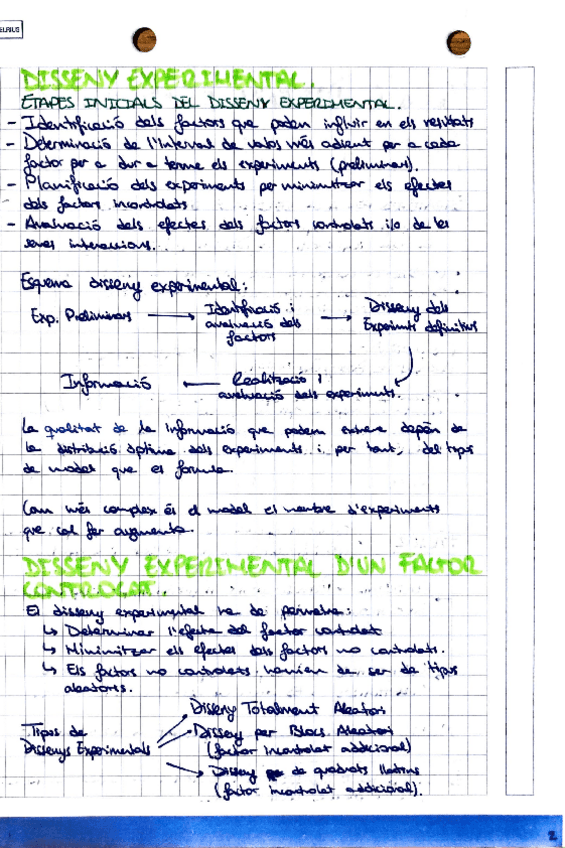 DISSENY EXPERIMENTAL.
ETAPES INICIALS DEL DISSENY EXPERIMENTAL.
- Identificació dels factors que poden influir en els resultats
- Determinació de l'interval de valors més adient per a cada
factor per a dur a terme els experiments (preliminars).
- Planificació dels experiments per minimitzar els efectes
dels factors incontrolats
- Avaluació dels efectes dels factors controlats i/o de les
seves interaccions.
Esquema disseny experimental:
Exp. Preliminars → Identificació i avaluació dels factors → Disseny dels Experiments definitius
Informació ← Realització i avaluació dels experiments.
La qualitat de la informació que podem extreure depèn de
la distribució òptima dels experiments i per tant, del tipus
de model que es formula.
Com més complex és el model el nombre d'experiments
que cal fer augmenta.
DISSENY EXPERIMENTAL D'UN FACTOR
CONTROLAT.
El disseny experimental ha de permetre:
↳ Determinar l'efecte del factor controlat
↳ Minimitzar els efectes dels factors no controlats.
↳ Els factors no controlats haurien de ser de tipus
aleatoris.
Tipos de
Dissenys Experimentals
Disseny Totalment Aleatori
Disseny per Blocs Aleatori
(factor incontrolat addicional)
Disseny de quadrats llatins
(factor incontrolat addicional).
2